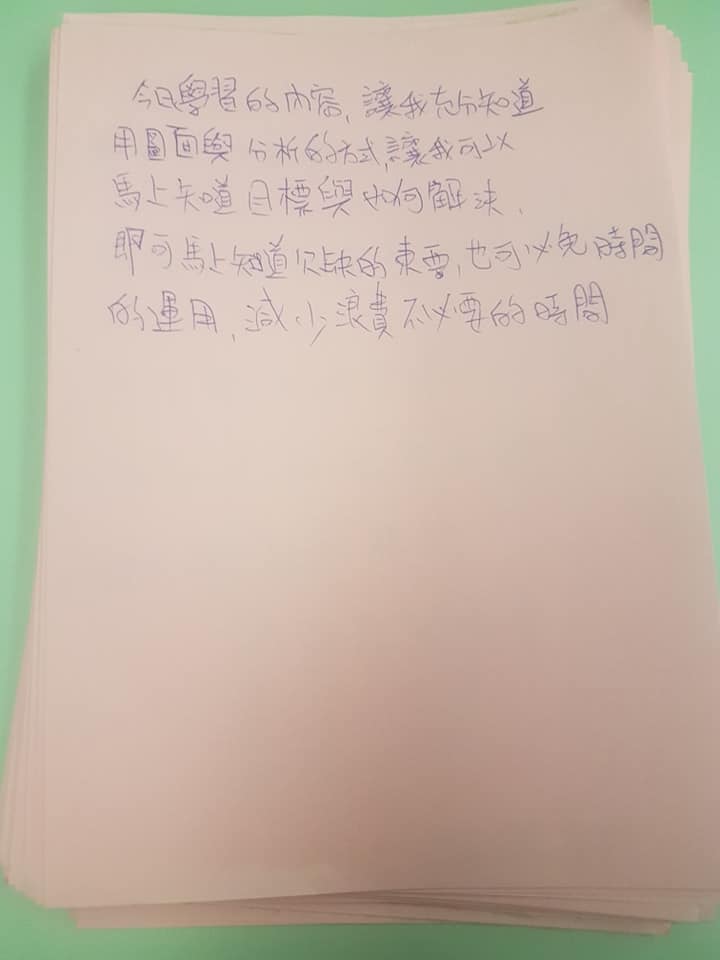 今日學習的內容，讓我充分知道
用圖面與分析的方式，讓我可以
馬上知道目標與如何解決，
即可馬上知道欠缺的東要，也可以免時間
的運用，減少浪費不必要的時間